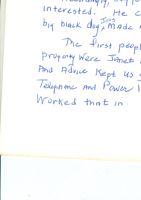 interested. He c
big black dog, Jinx made
The first peopl
property were Janet
And Advice Kept us
Telephone and Power l
Worked that in